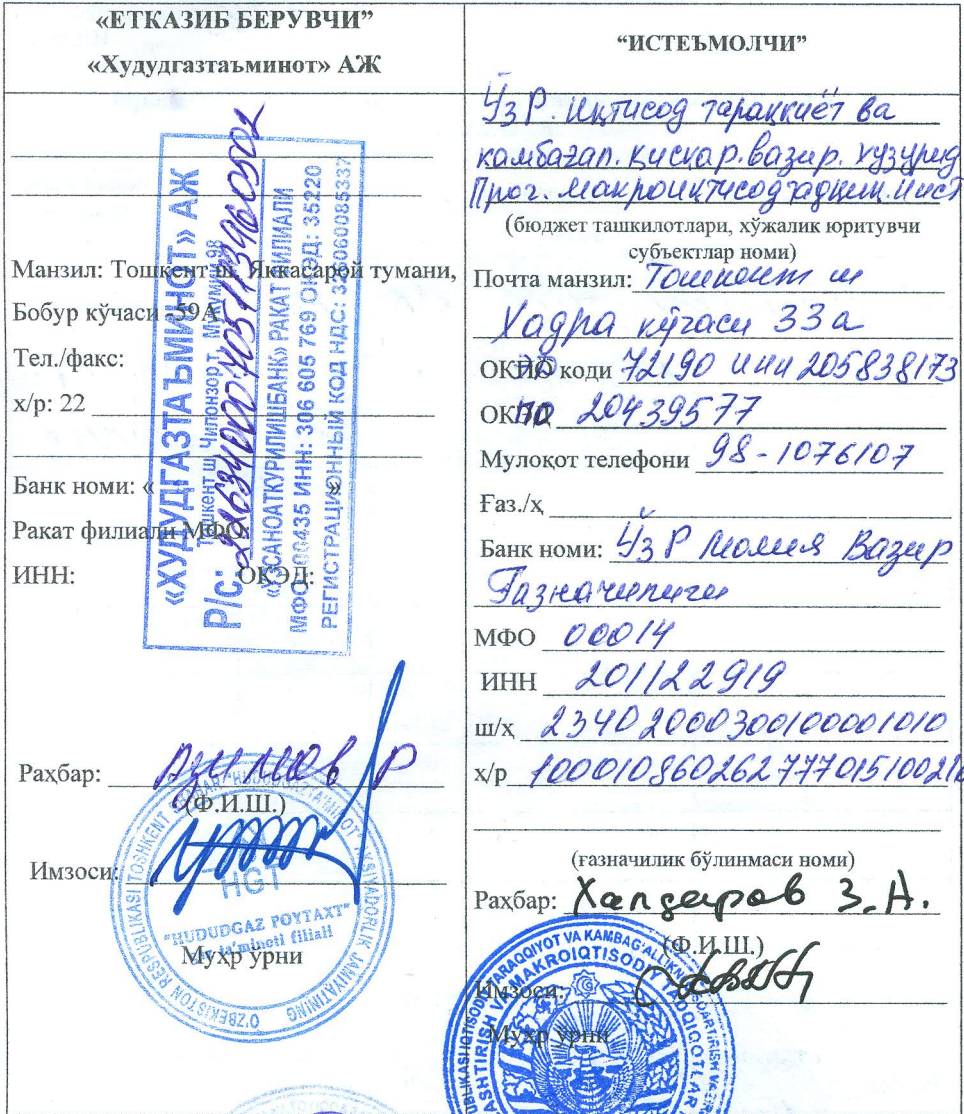 «ЕТКАЗИБ БЕРУВЧИ”
«Худудгазтаъминот» АЖ
Манзил: Тошкент ш. Яккасарой тумани,
Бобур кўчаси -59А
Тел./факс:
х/р: 22
Банк номи: « »
Ракат филиали МФО:
ИНН: ОКЭД:
«ХУДУДГАЗТАЪМИНОТ» АЖ
Тошкент ш. Чилонзор т.
Р/с:
«УЗСАНОАТКУРИЛИШБАНК» РАКАТ ФИЛИАЛИ
МФО: 00435 ИНН: 306 605 769 ОКЭД: 35220
РЕГИСТРАЦИОННЫЙ КОД НДС: 326060085337
Раҳбар: Р
(Ф.И.Ш.)
Имзоси:
HGT
"HUDUDGAZ POYTAXT"
gaz ta'minoti filiali
Муҳр ўрни
“ИСТЕЪМОЛЧИ”
ЎзР. Иқтисод тараққиёт ва
камбағал. қисқар. вазир. ҳузурид
Прог. макроиқтисод тадқиқ. инст
(бюджет ташкилотлари, хўжалик юритувчи
субъектлар номи)
Почта манзил: Тошкент ш
Хадра кўчаси 33а
коди 72190 инн 205838173
20439577
Мулоқот телефони 98-1076107
Ғаз./ҳ
Банк номи: ЎзР Молия Вазир
Ғазначилиги
МФО 00014
ИНН 201122919
ш/ҳ 23402000300100001010
х/р 10001086026277701510021
(ғазначилик бўлинмаси номи)
Раҳбар: Халдаров З.А.
(Ф.И.Ш.)
Имзоси:
Муҳр ўрни